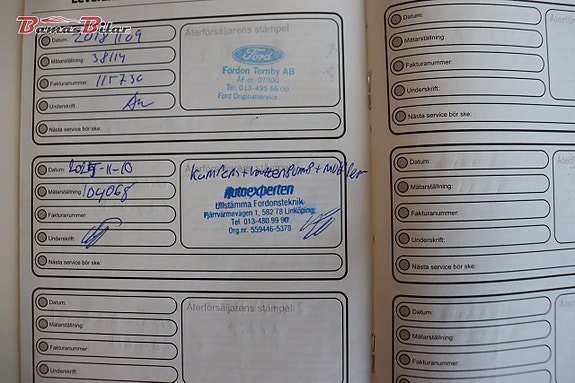 Bamas Bilar
Datum: 2018 11 09
Mätarställning: 38114
Fakturanummer: 115730
Underskrift:
Nästa service bör ske:
Återförsäljarens stämpel
Ford
Fordon Tornby AB
ÅF-nr. 07900
Tel: 013-495 66 00
Ford Originalservice
Datum: 2025-11-10
Mätarställning: 104068
Fakturanummer:
Underskrift:
Nästa service bör ske:
Återförsäljarens stämpel
Kamrem + vattenpump + motorolja
Autoexperten
Ullstämma Fordonsteknik
Fjärrvärmevägen 1, 582 78 Linköping
Tel. 013-480 99 90
Org.nr. 559446-5378
Datum:
Mätarställning:
Fakturanummer:
Underskrift:
Återförsäljarens stämpel
Datum:
Mätarställning:
Fakturanummer:
Underskrift:
Nästa service bör ske:
Datum:
Mätarställning:
Fakturanummer:
Underskrift:
Nästa service bör ske:
Datum:
Mätarställning:
Fakturanummer:
Underskrift: